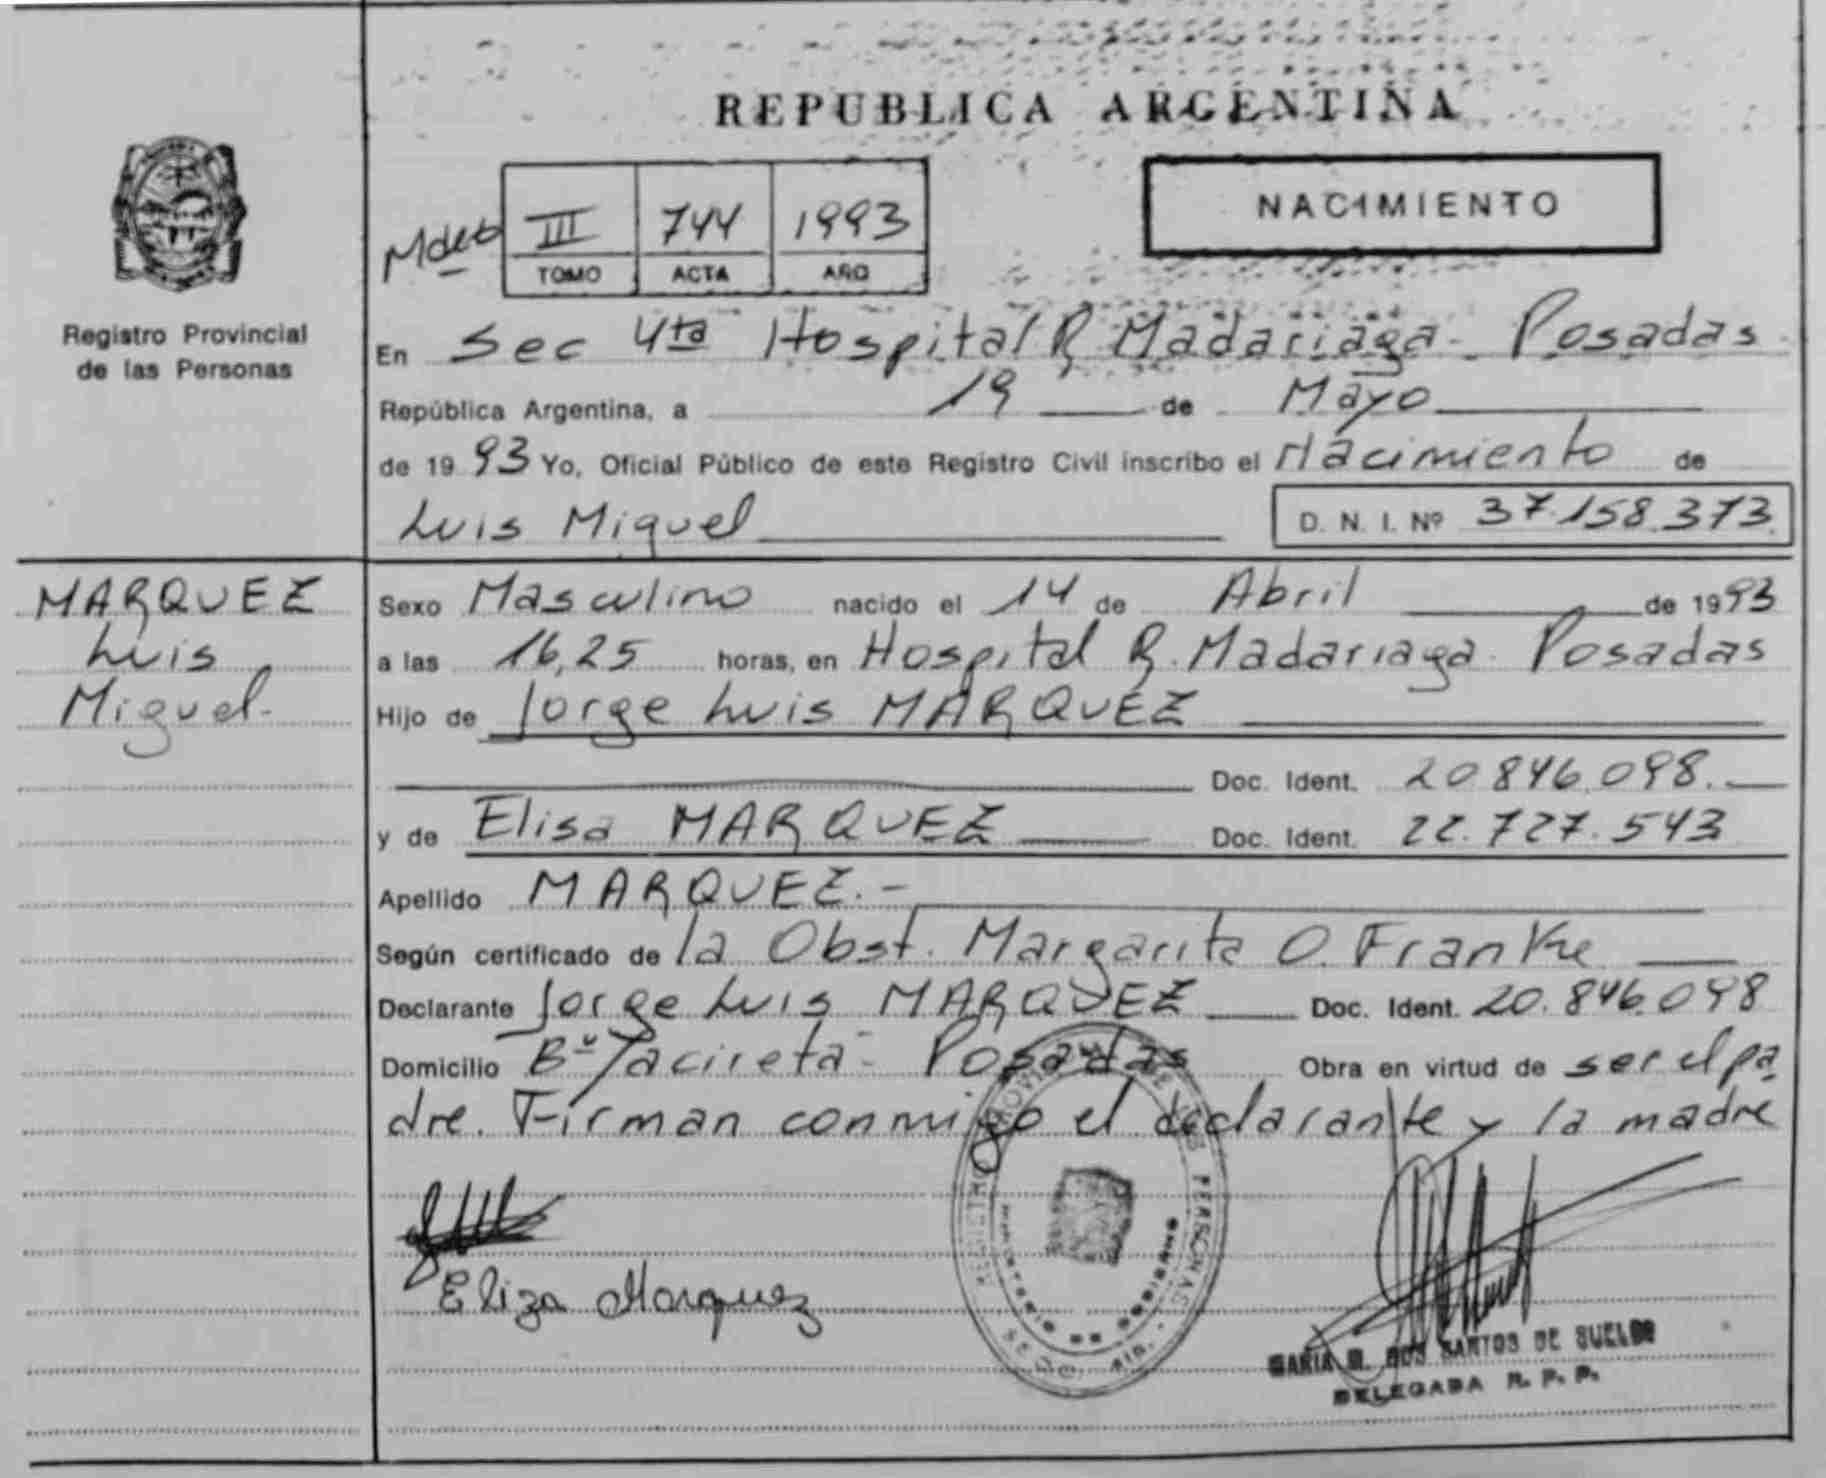 REPUBLICA ARGENTINA
NACIMIENTO
III 744 1993
TOMO ACTA AÑO
Registro Provincial
de las Personas
En Sec 4ta Hospital R. Madariaga - Posadas
República Argentina, a 19 de Mayo
de 1993 Yo, Oficial Público de este Registro Civil inscribo el Nacimiento de
Luis Miguel D. N. I. Nº 37.158.373
MARQUEZ
Luis
Miguel.-
Sexo Masculino nacido el 14 de Abril de 1993
a las 16,25 horas, en Hospital R. Madariaga - Posadas
Hijo de Jorge Luis MARQUEZ
Doc. Ident. 20.846.098.
y de Elisa MARQUEZ Doc. Ident. 22.727.543
Apellido MARQUEZ.-
Según certificado de la Obst. Margarita O. Franke
Declarante Jorge Luis MARQUEZ Doc. Ident. 20.846.098
Domicilio Bº Yacireta - Posadas Obra en virtud de ser el pa
dre. Firman conmigo el declarante y la madre
Eliza Marquez
REGISTRO PROVINCIAL DE LAS PERSONAS
MINISTERIO DE GOBIERNO
DOS SANTOS DE SUELDO
DELEGADA R. P. P.